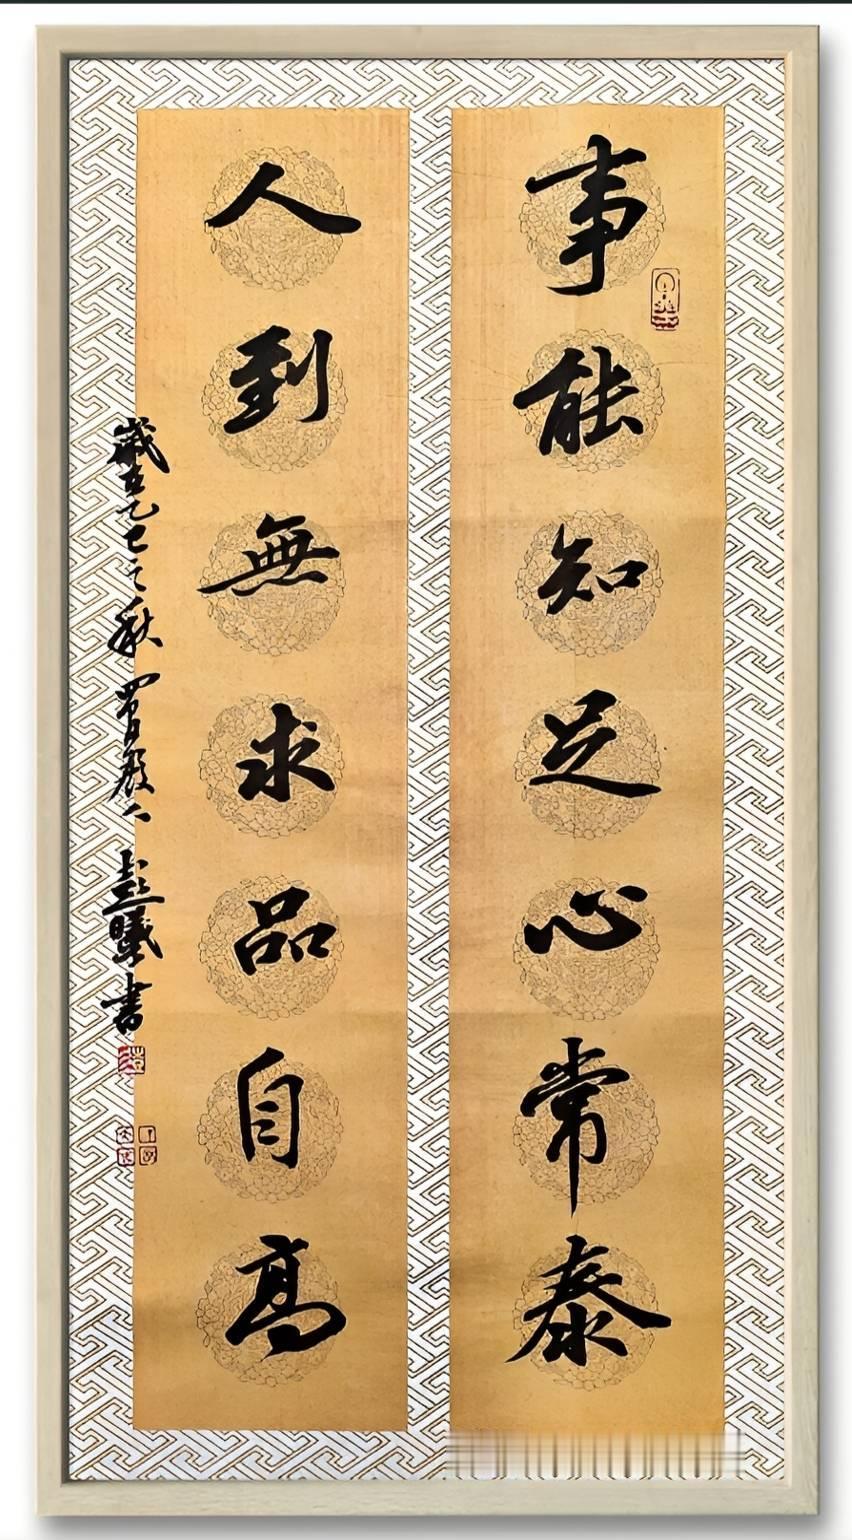 事能知足心常泰
人到無求品自高
歲在乙巳之秋 彭曦書